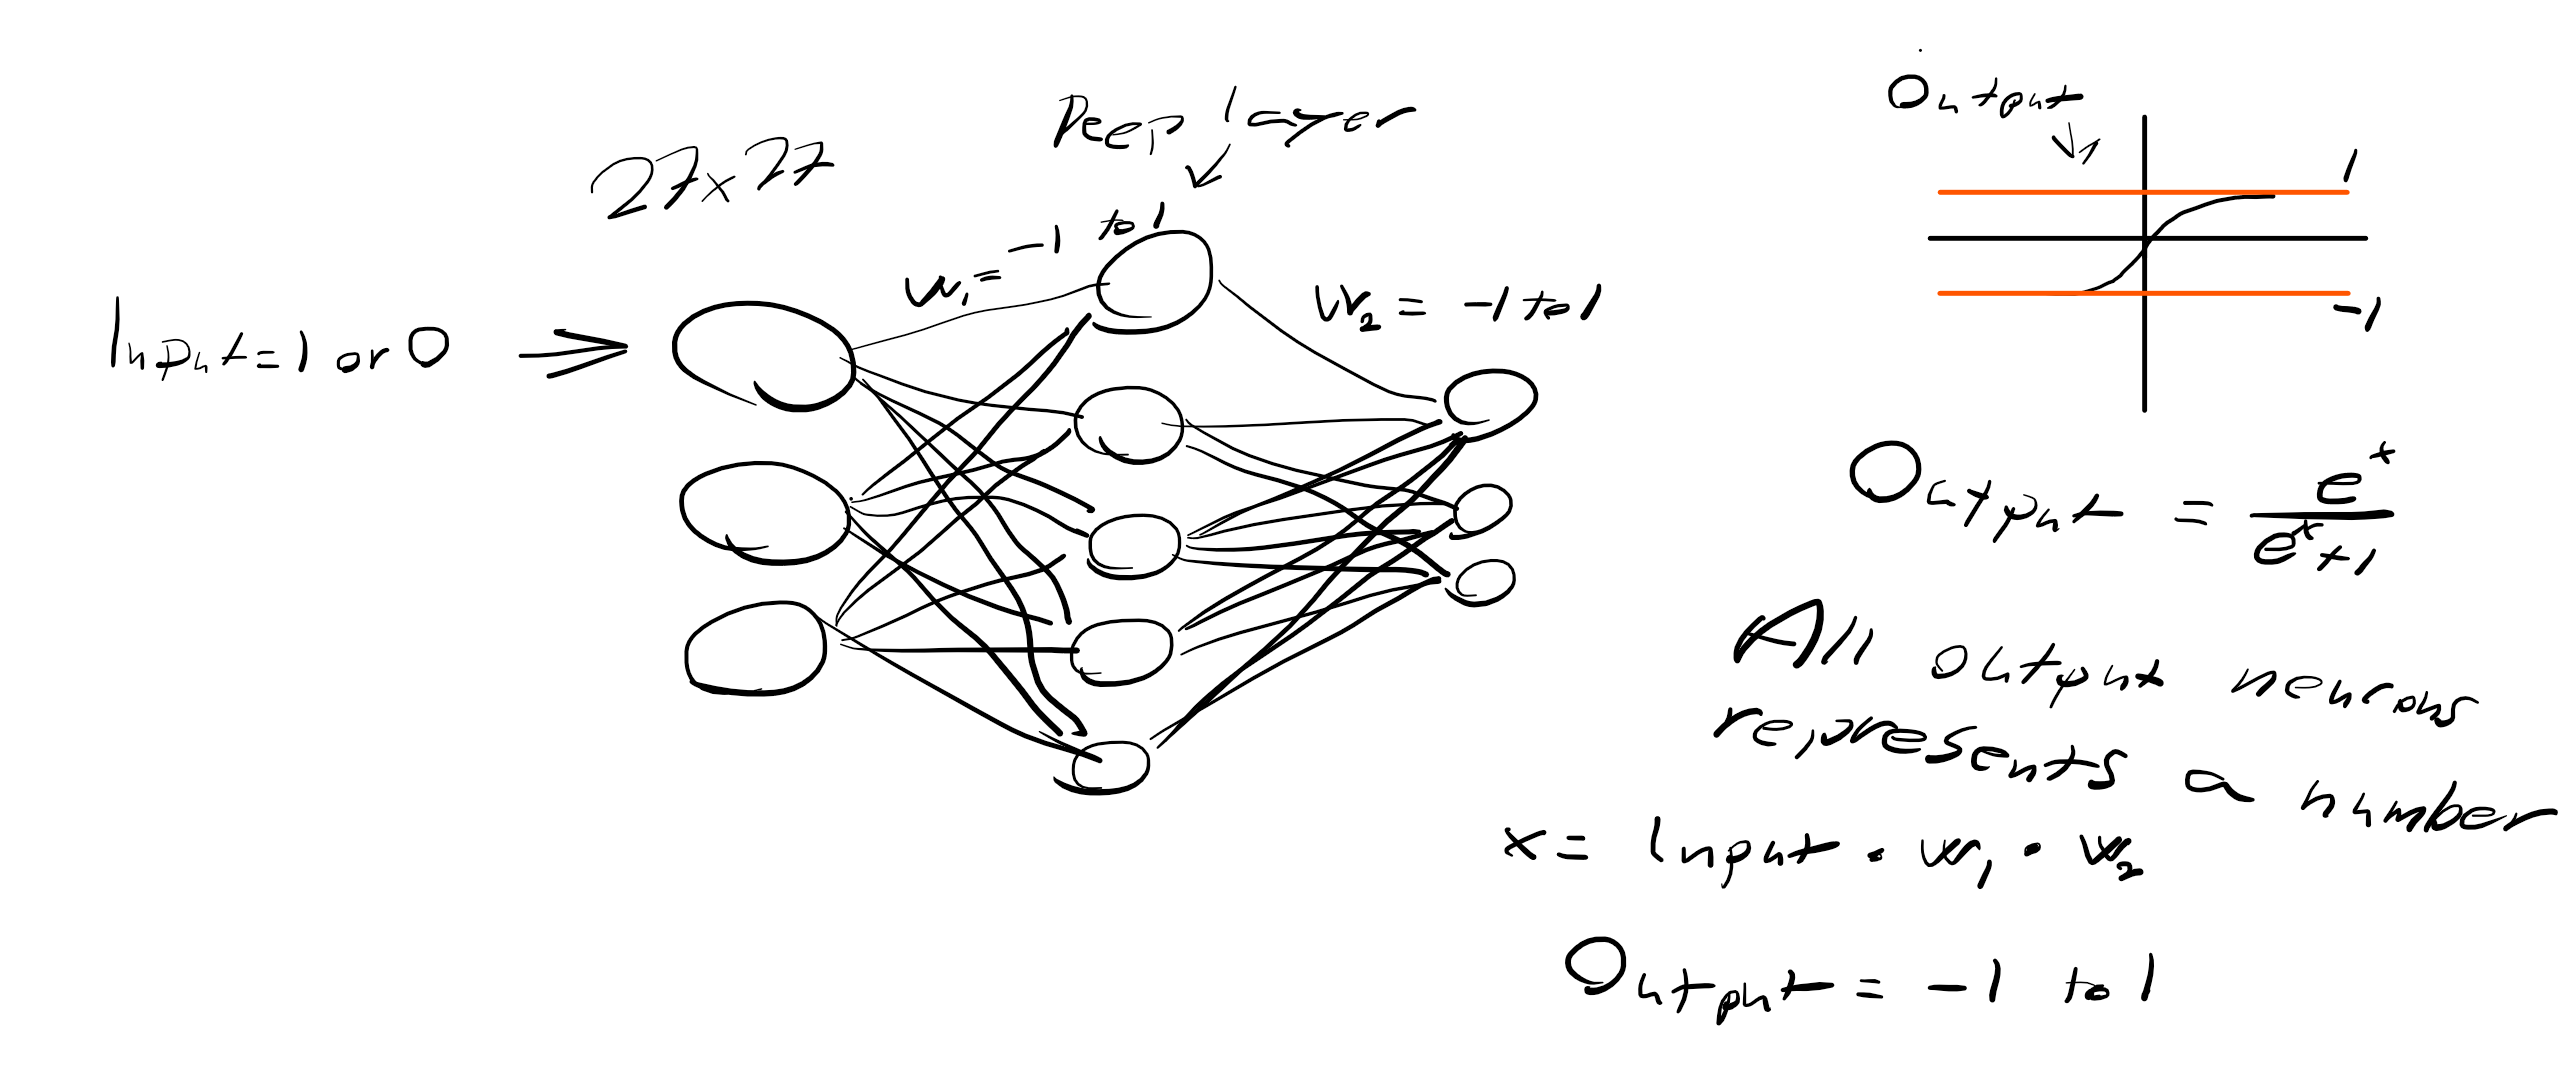 27x27
Deep layer
Input = 1 or 0
w₁ = -1 to 1
w₂ = -1 to 1
Output
1
-1
Output = e^x / e^x+1
All output neurons
represents a number
x = Input · w₁ · w₂
Output = -1 to 1